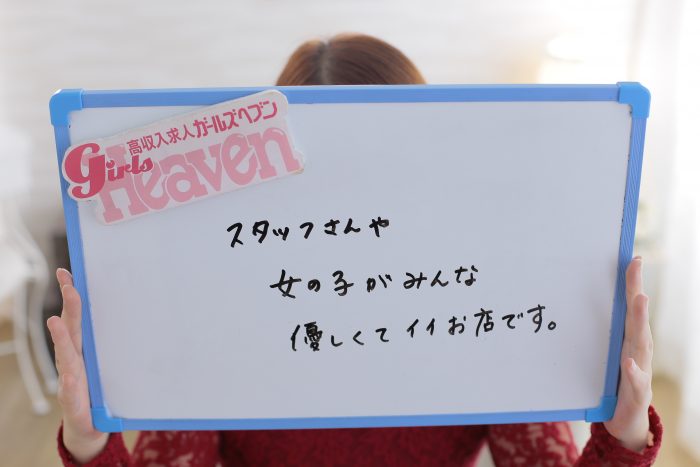 高収入求人ガールズヘブン
Girls
Heaven
スタッフさんや
女の子がみんな
優しくてイイお店です。